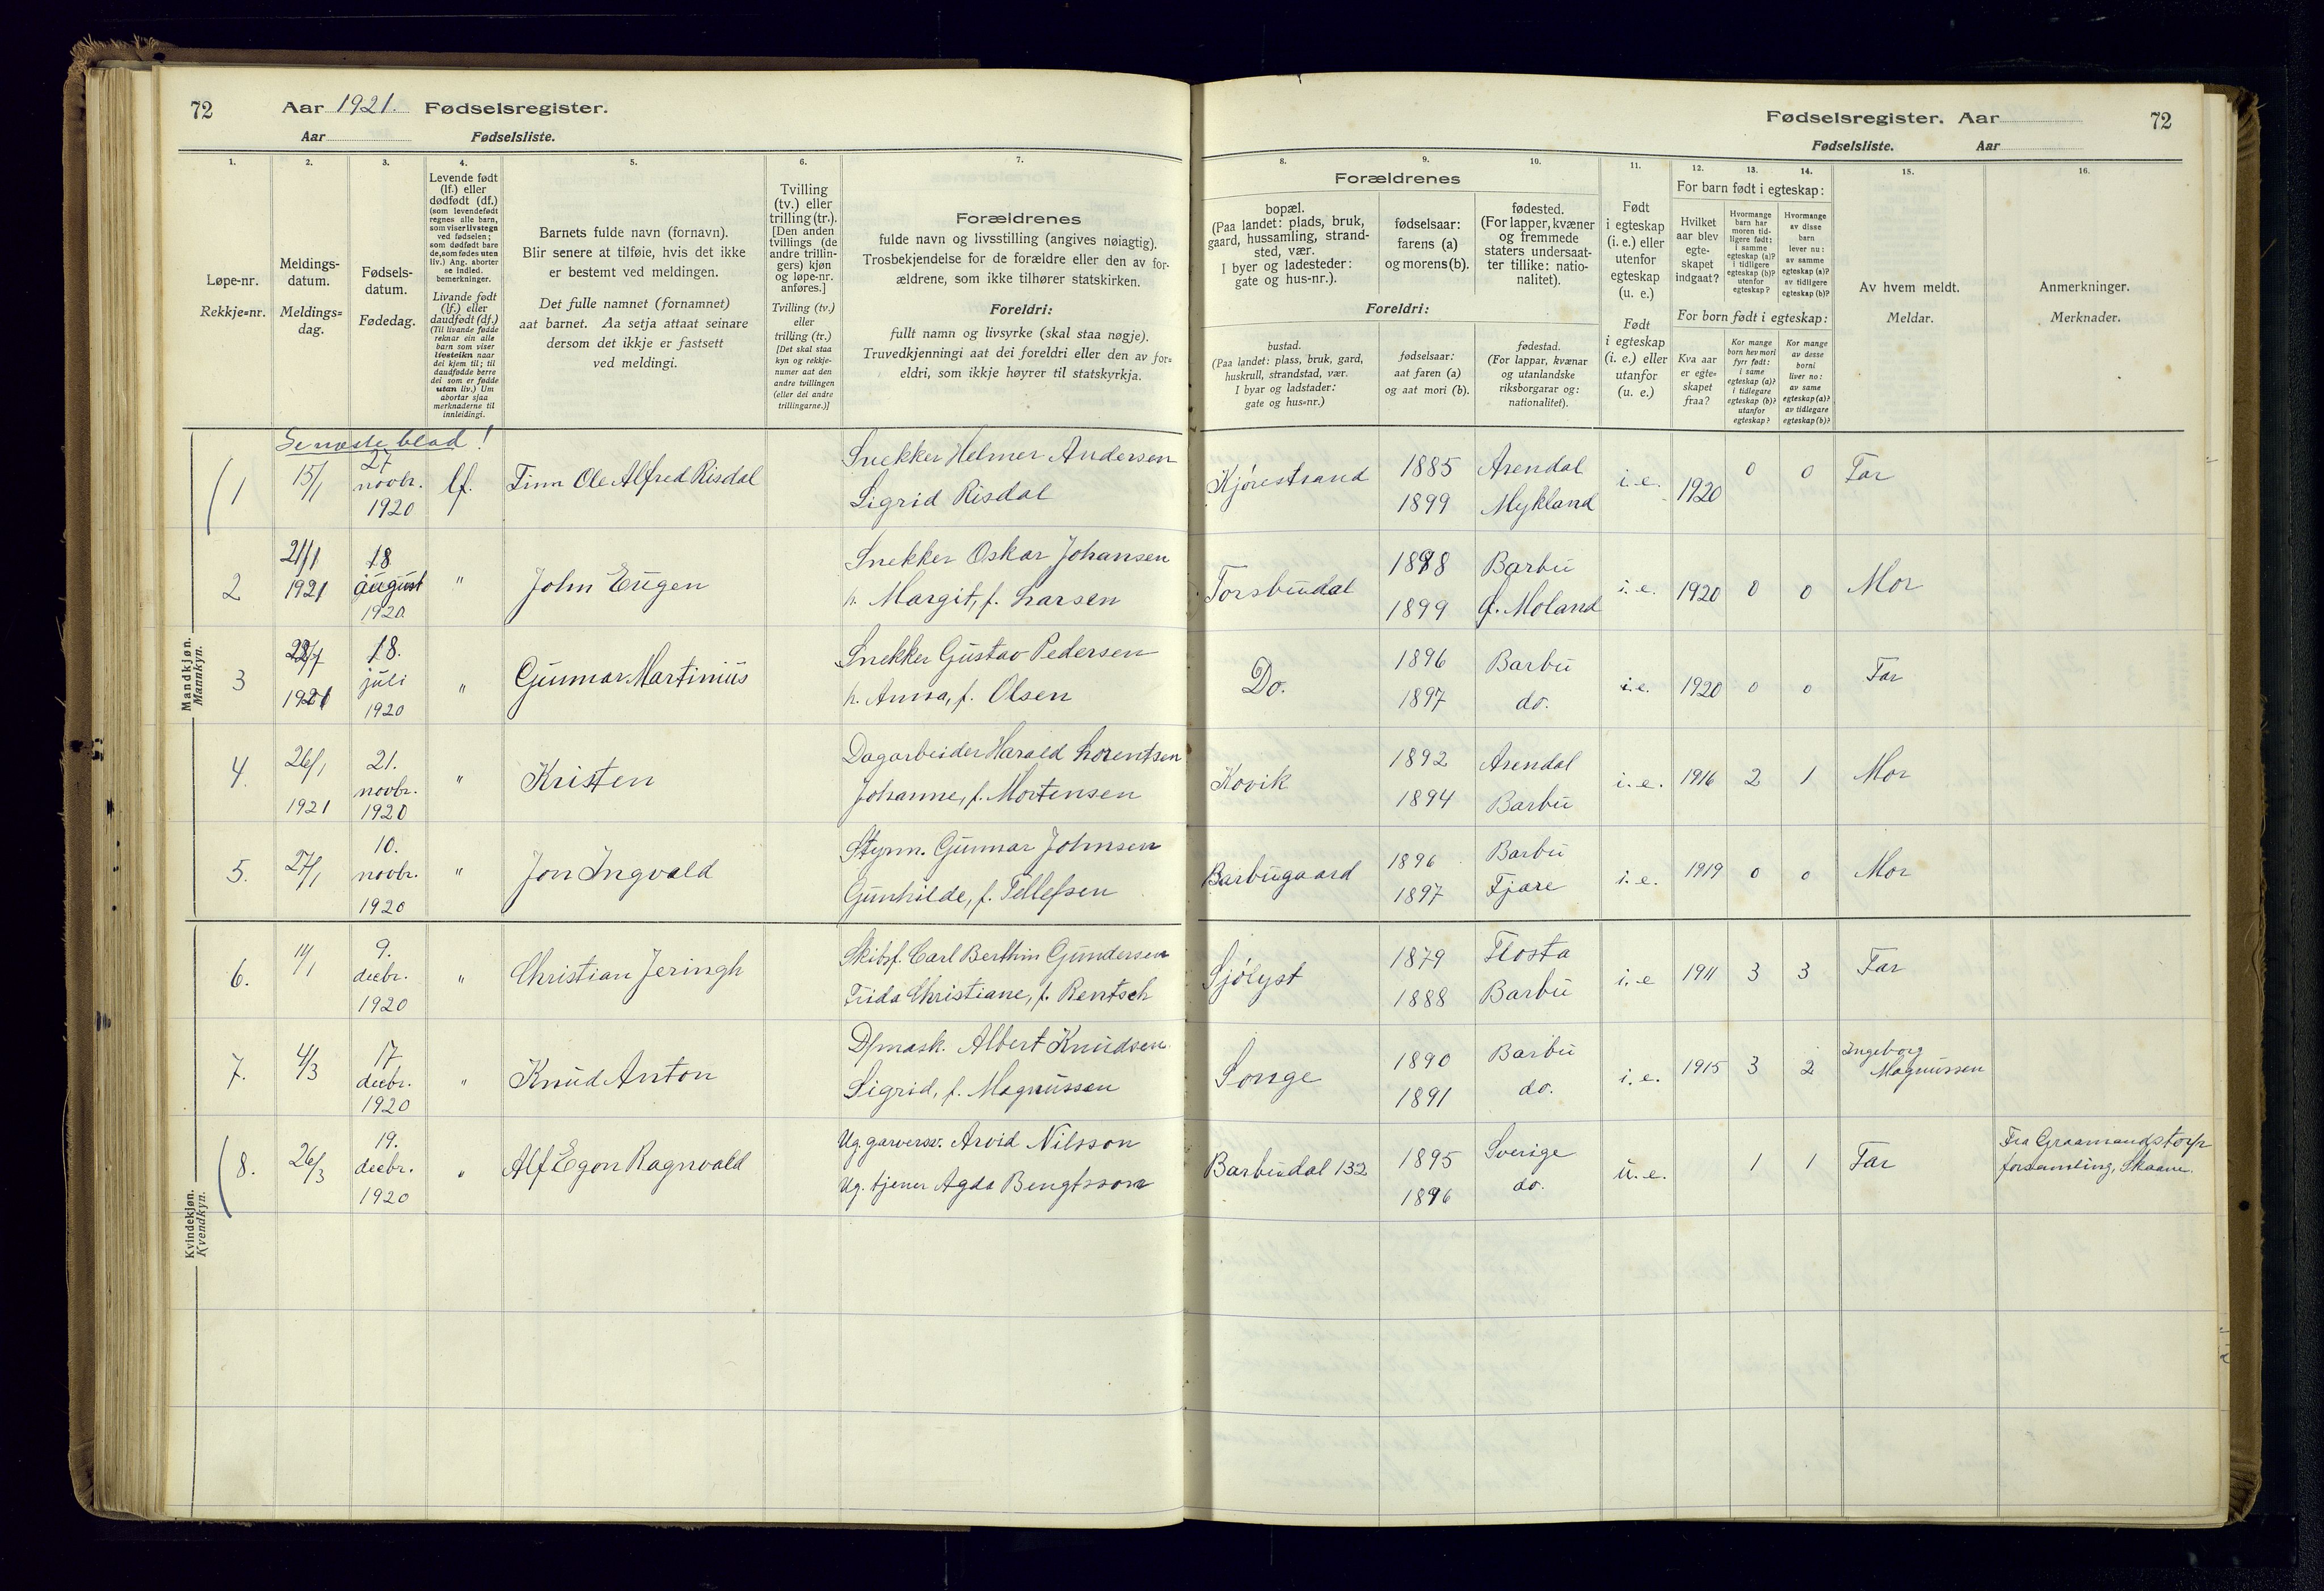 72 Aar 1921. Fødselsregister.
Aar Fødselsliste.
1. 2. 3. 4. 5. 6. 7.
Løpe-nr.
Rekkje=nr.
Meldings-
datum.
Meldings=
dag.
Fødsels-
datum.
Fødedag.
Levende født
(lf.) eller
dødfødt (df.)
(som levendefødt
regnes alle barn,
som viser livstegn
ved fødselen;
som dødfødt bare
de, som fødes uten
liv.) Ang. aborter
se indled.
bemerkninger.
Livande født
(lf.) eller
daudfødt (df.)
(Til livande fødde
reknar ein alle
barn som viser
livsteikn naar
dei kjem til; til
daudfødde berre
dei som er fødde
utan liv.) Um
abortar sjaa
merknaderne til
innleidingi.
Barnets fulde navn (fornavn).
Blir senere at tilføie, hvis det ikke
er bestemt ved meldingen.
Det fulle namnet (fornamnet)
aat barnet. Aa setja attaat seinare
dersom det ikkje er fastsett
ved meldingi.
Tvilling
(tv.) eller
trilling (tr.).
[Den anden
tvillings (de
andre trillin-
gers) kjøn
og løpe-nr.
anføres.]
Tvilling (tv.)
eller
trilling (tr.)
[Det skal staa
kyn og rekkje-
numer aat den
andre tvillingen
(eller dei andre
trillingarne.)]
Forældrenes
fulde navn og livsstilling (angives nøiagtig).
Trosbekjendelse for de forældre eller den av for-
ældrene, som ikke tilhører statskirken.
Foreldri:
fullt namn og livsyrke (skal staa nøgje).
Truvedkjenningi aat dei foreldri eller den av for=
eldri, som ikkje høyrer til statskyrkja.
Mandkjøn.
Mannkyn.
Se næste blad!
1 15/1 27 novbr. 1920 lf. Finn Ole Alfred Risdal Snekker Helmer Andersen
Sigrid Risdal
2 21/1 1921 18. august 1920. " John Eugen Snekker Oskar Johansen
h. Margit, f. Larsen
3 1921 18. juli 1920 " Gunnar Martinius Snekker Gustav Pedersen
h. Anna, f. Olsen
4. 26/1 1921 21. novbr. 1920 " Kristen Dagarbeider Harald Lorentsen
Johanne, f. Mortensen
5. 27/1 10. novbr. 1920 " Jon Ingvald Styrm. Gunnar Johnsen
Gunhilde, f. Tellefsen
6. 11/1 9. decbr. 1920 " Christian Jeringh Skibsf. Carl Berthin Gundersen
Frida Christiane, f. Rentsch
7. 4/3 17. decbr. 1920 " Knud Anton D/mask. Albert Knudsen
Sigrid, f. Magnussen
8. 26/3 19. decbr. 1920 " Alf Egon Ragnvald Ug. garversv. Arvid Nilsson
Ug. tjener Agda Bengtsson
Kvindekjøn.
Kvendkyn.
Fødselsregister. Aar 72
Fødselsliste. Aar
8. 9. 10. 11. 12. 13. 14. 15. 16.
Forældrenes
bopæl.
(Paa landet: plads, bruk,
gaard, hussamling, strand-
sted, vær.
I byer og ladesteder:
gate og hus-nr.).
fødselsaar:
farens (a)
og morens (b).
fødested.
(For lapper, kvæner
og fremmede
staters undersaat-
ter tillike: natio-
nalitet).
Foreldri:
bustad.
(Paa landet: plass, bruk, gard,
huskrull, strandstad, vær.
I byar og ladstader:
gate og hus=nr.)
fødselsaar:
aat faren (a)
og aat mori (b).
fødestad.
(For lappar, kvænar
og utanlandske
riksborgarar og:
nationalitet).
Født
i egteskap
(i. e.) eller
utenfor
egteskap
(u. e.)
Født
i egteskap
(i. e.) eller
utanfor
(u. e.)
For barn født i egteskap:
Hvilket
aar blev
egte-
skapet
indgaat?
Hvormange
barn har
moren tid-
ligere født:
i samme
egteskap (a)?
i tidligere
egteskap (b)?
utenfor
egteskap?
Hvormange
av disse
barn
lever nu:
av samme
egteskap (a)?
av tidligere
egteskap (b)?
For born født i egteskap:
Kva aar
er egte=
skapet
fraa?
Kor mange
born hev mori
fyrr født:
i same
egteskap (a)?
i tidlegare
egteskap (b)?
utanfor
egteskap?
Kor mange
av desse
borni
liver no:
av same
egteskap (a)?
av tidlegare
egteskap (b)?
Av hvem meldt.
Meldar.
Anmerkninger.
Merknader.
Kjørestrand 1885 Arendal i. e. 1920 0 0 Far
1899 Mykland
Torsbudal 1898 Barbu i. e. 1920 0 0 Mor
1899 Moland
Do. 1896 Barbu i. e. 1920 0 0 Far
1897 do.
Kovik 1892 Arendal i. e. 1916 2 1 Mor
1894 Barbu
Barbugaard 1896 Barbu i. e. 1919 0 0 Mor
1897 Fjære
Sjølyst 1879 Flosta i. e 1911 3 3 Far
1888 Barbu
Songe 1890 Barbu i. e. 1915 3 2 Ingeborg Magnussen
1891 do.
Barbudal 132 1895 Sverige u. e. 1 1 Far Fra Graamandstorp
1896 do. forsamling, Skaane.